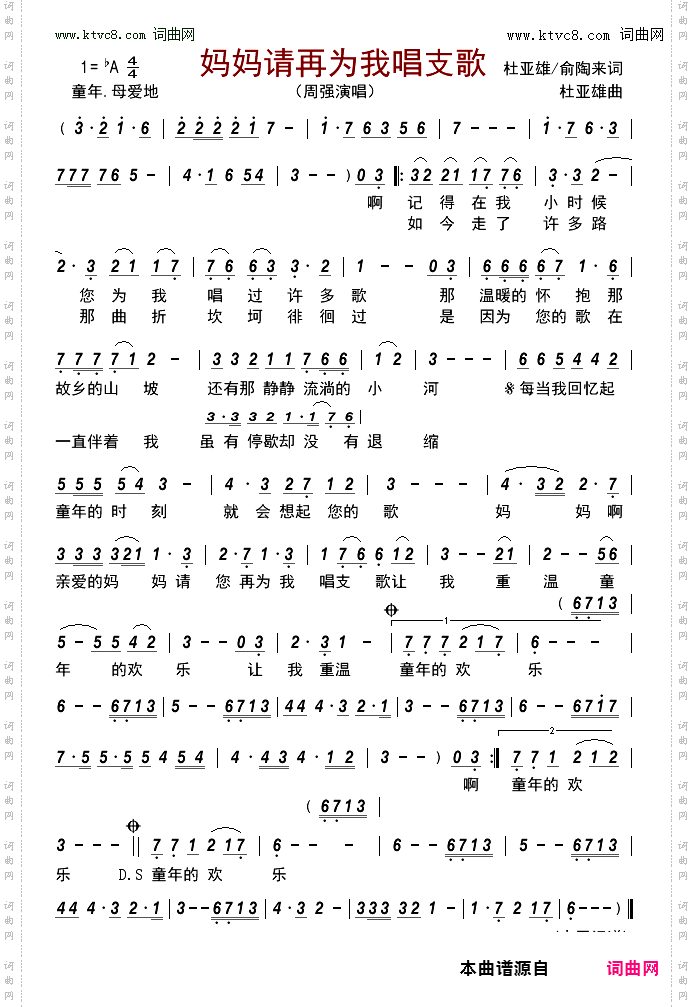 www.ktvc8.com 词曲网 www.ktvc8.com 词曲网
1=♭A 4/4 妈妈请再为我唱支歌 杜亚雄/俞陶来词
童年.母爱地 （周强演唱） 杜亚雄曲
( 3·2 1·6 | 2 2 2 2 2 1 7 - | 1·7 6 3 5 6 | 7 - - - | 1·7 6·3 |
7 7 7 7 6 5 - | 4·1 6 5 4 | 3 - - ) 0 3 |: 3 2 2 1 1 7 7 6 | 3·3 2 - |
啊 记 得 在 我 小 时 候
如 今 走 了 许 多 路
2·3 2 1 1 7 | 7 6 6 3 3·2 | 1 - - 0 3 | 6 6 6 6 7 1·6 |
您 为 我 唱 过 许 多 歌 那 温暖的 怀 抱 那
那 曲 折 坎 坷 徘 徊 过 是 因为 您的 歌 在
7 7 7 7 1 2 - | 3 3 2 1 1 7 6 6 | 1 2 | 3 - - - | 6 6 5 4 4 2 |
故乡的山 坡 还有那 静静 流淌的 小 河 𝄋每当我回忆起
3·3 3 2 1·1 7 6 |
一直伴着 我 虽 有 停歇却 没 有 退 缩
5 5 5 5 4 3 - | 4·3 2 7 1 2 | 3 - - - | 4·3 2 2·7 |
童年的 时 刻 就 会 想起 您的 歌 妈 妈 啊
3 3 3 3 2 1 1·3 | 2·7 1·3 | 1 7 6 6 1 2 | 3 - - 2 1 | 2 - - 5 6 |
亲爱的妈 妈 请 您 再为 我 唱支 歌让 我 重 温 童
( 6 7 1 3
5 - 5 5 4 2 | 3 - - 0 3 | 2·3 1 - | 7 7 7 2 1 7 | 6 - - - |
年 的欢 乐 让 我 重温 童年的 欢 乐
6 - - 6 7 1 3 | 5 - - 6 7 1 3 | 4 4 4·3 2·1 | 3 - - 6 7 1 3 | 6 - - 6 7 1 7 |
7·5 5·5 5 4 5 4 | 4·4 3 4·1 2 | 3 - - ) 0 3 :| 7 7 1 2 1 2 |
啊 童年的 欢
( 6 7 1 3
3 - - - || 7 7 1 2 1 7 | 6 - - - | 6 - - 6 7 1 3 | 5 - - 6 7 1 3 |
乐 D.S 童年的 欢 乐
4 4 4·3 2·1 | 3 - - 6 7 1 3 | 4·3 2 - | 3 3 3 3 2 1 - | 1·7 2 1 7 | 6 - - - ) ||
本曲谱源自 词曲网